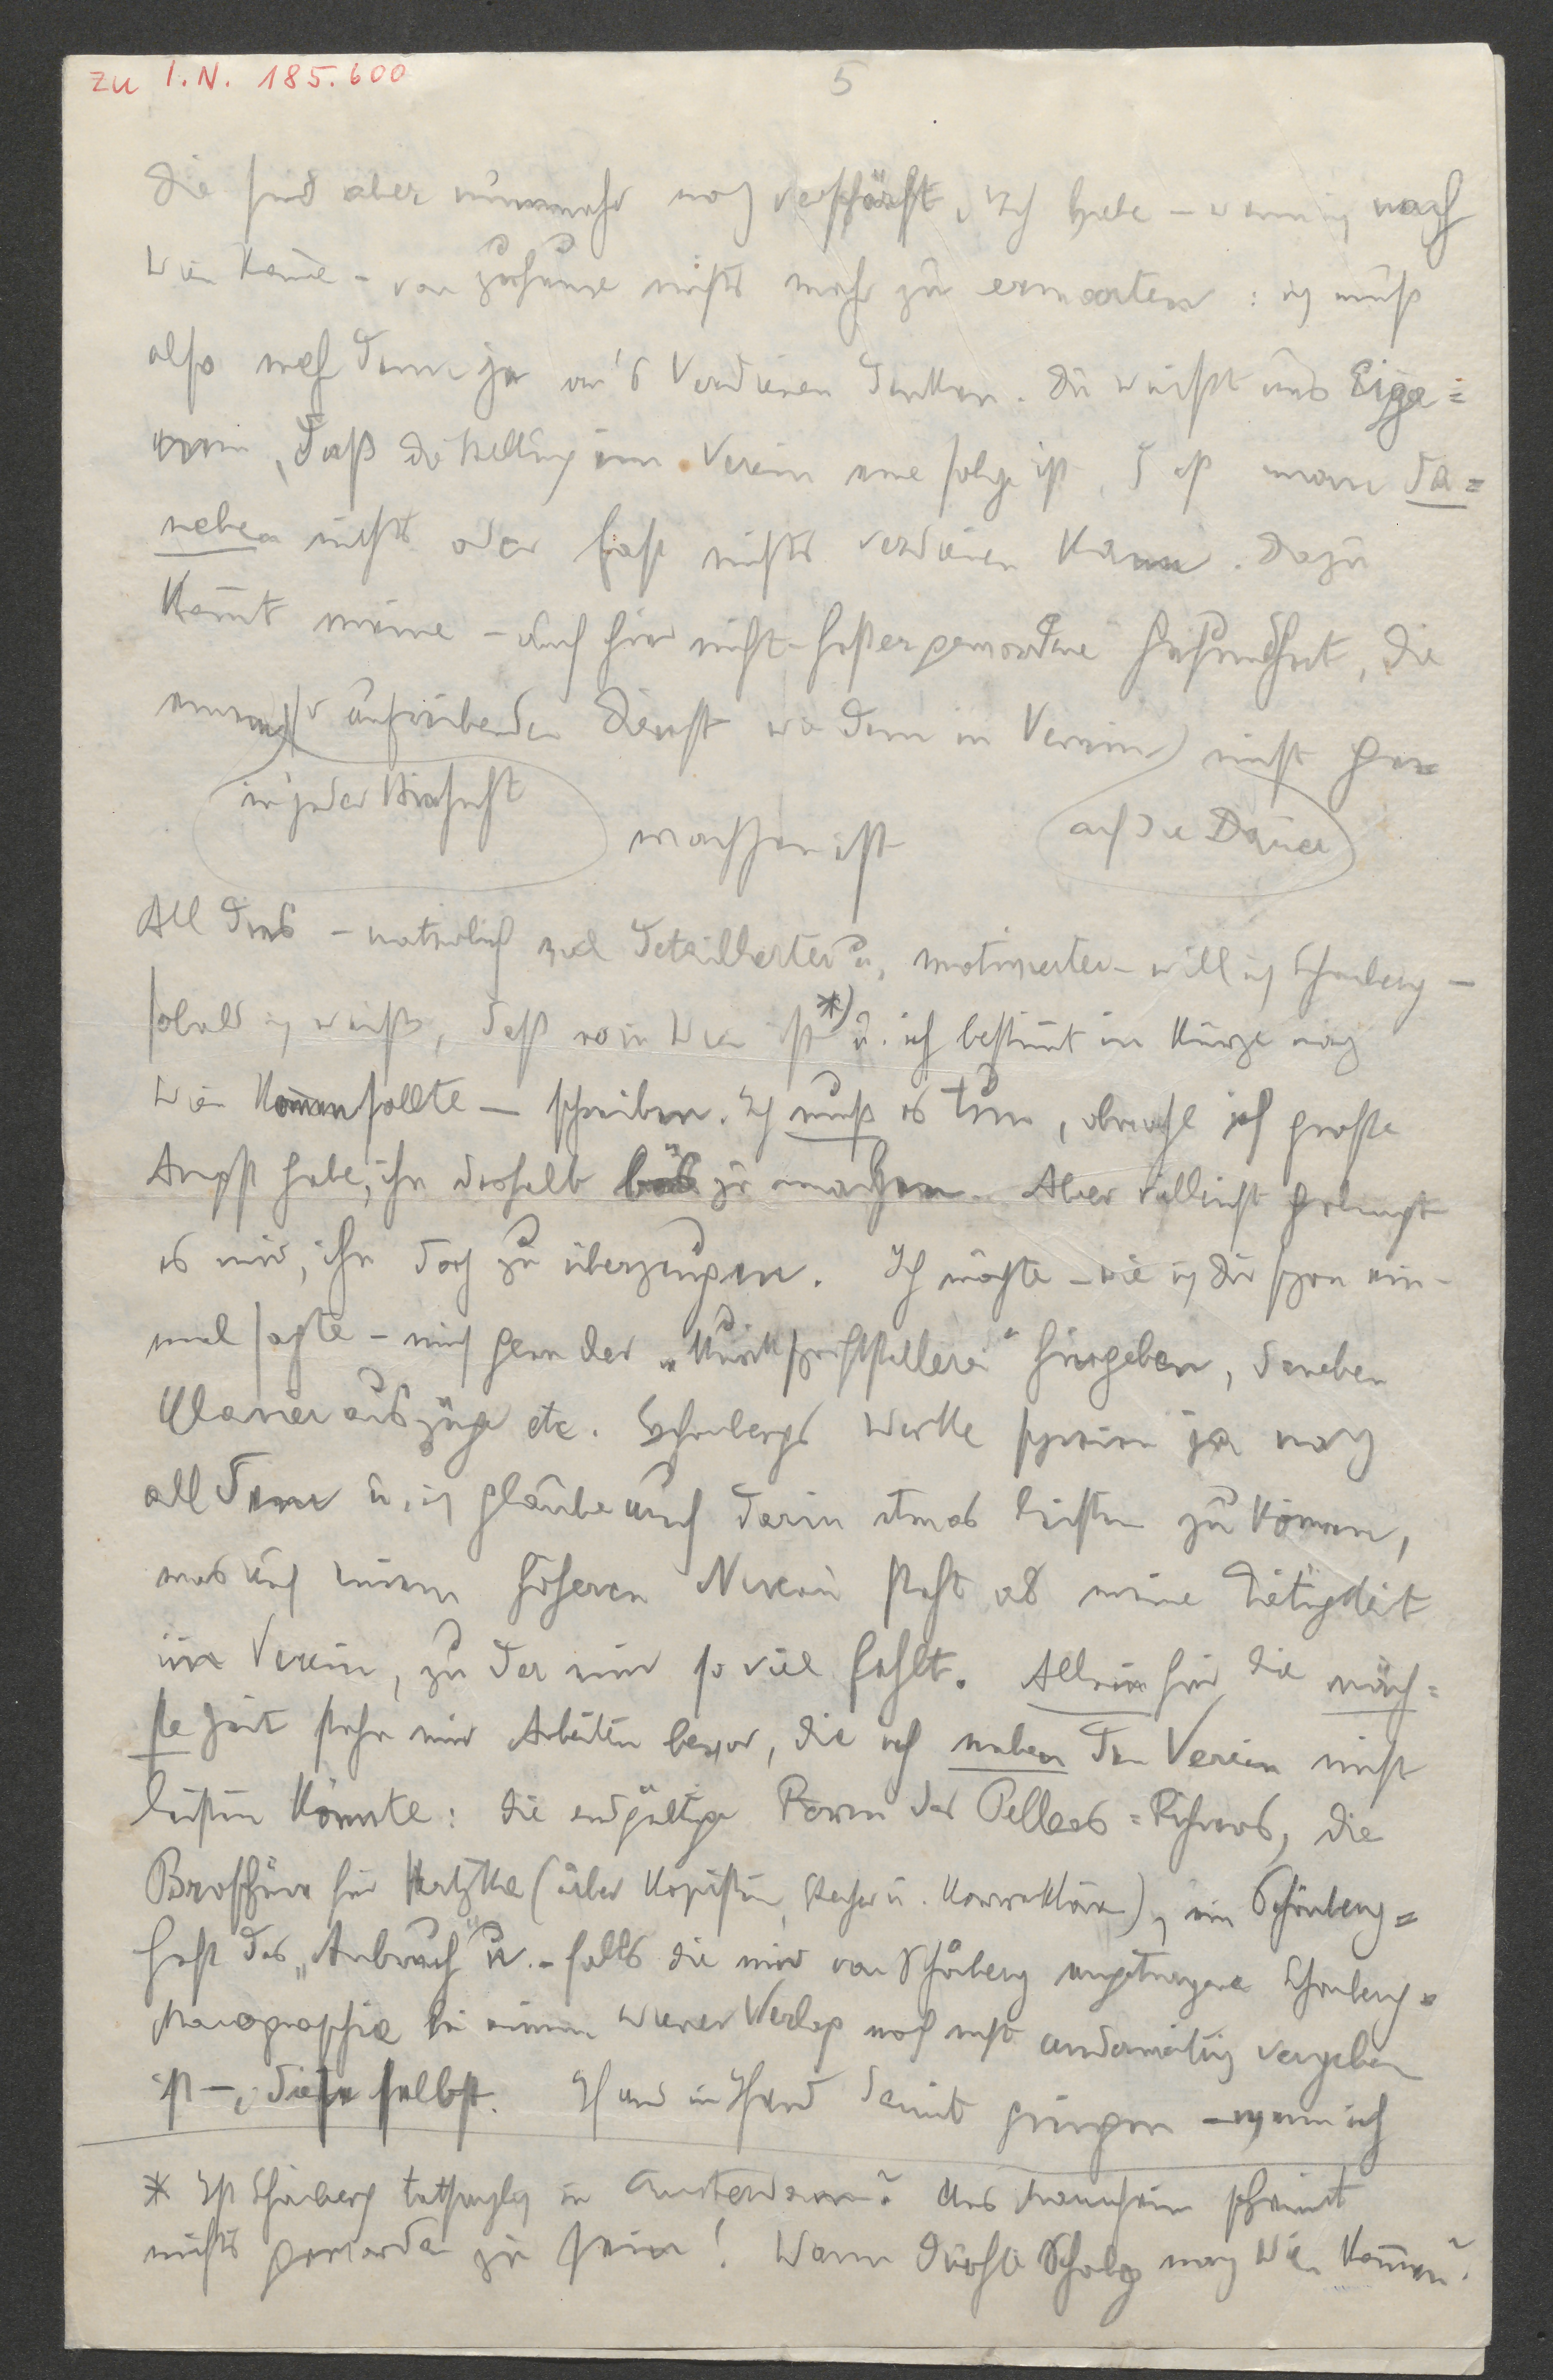 zu I.N. 185.600
5
Die sind aber nunmehr noch verschärft. Ich habe – wenn ich nach
Wien käme – von zuhause nichts mehr zu erwarten: ich muß
also mehr denn je an's Verdienen denken. Du weißt aus Eige=
nem, daß die Stellung im Verein eine solche ist, daß man da=
neben nichts oder fast nichts verdienen kann. Dazu
kommt meine – auch hier nicht besser gewordene Gesundheit, die
einem aufreibenden Dienst wie dem im Verein nicht ge=
in jeder Hinsicht
auf die Dauer
wachsen ist
All dies – natürlich viel detaillierter u. motivierter – will ich Schönberg –
sobald ich weiß, daß er in Wien ist *) u. ich bestimmt in Kürze nach
Wien kommen sollte – schreiben. Ich muß es tun, obwohl ich große
Angst habe, ihn deshalb bös zu machen. Aber vielleicht gelingt
es mir, ihn doch zu überzeugen. Ich möchte – wie ich dir schon ein=
mal sagte – mich gern der „Musikschriftstellerei" hingeben, daneben
Klavierauszüge etc. Schönbergs Werke schreien ja nach
all dem u. ich glaube auch darin etwas leisten zu können,
was auf einem höheren Niveau steht als meine Tätigkeit
im Verein, zu der mir so viel fehlt. Allein für die näch=
ste Zeit stehn mir Arbeiten bevor, die ich neben dem Verein nicht
leisten könnte: die endgültige Form des Pelleas=Führers, die
Broschüre für Hertzka (über Kopisten, Stecher u. Korrektoren), ein Schönberg=
heft des „Anbruch" u. – falls die mir von Schönberg angetragene Schönberg=
Monographie bei einem Wiener Verlag noch nicht anderweitig vergeben
ist –, diese selbst. Hand in Hand damit gingen – wenn ich
* Ist Schönberg tatsächlich in Amsterdam? Aus Mannheim scheint
nichts geworden zu sein! Wann dürfte Schbg nach Wien kommen?